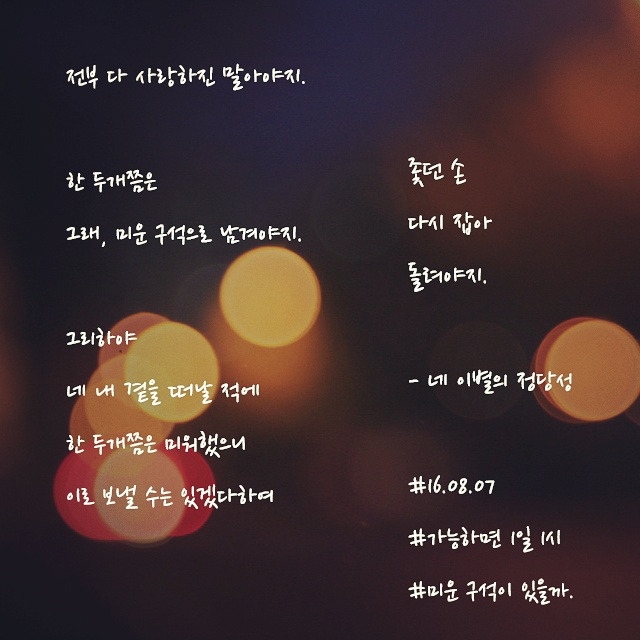 전부 다 사랑하진 말아야지.
한 두개쯤은
그래, 미운 구석으로 남겨야지.
그리하야
네 내 곁을 떠날 적에
한 두개쯤은 미워했으니
이로 보낼 수는 있겠다하여
좇던 손
다시 잡아
돌려야지.
- 네 이별의 정당성
#16.08.07
#가능하면 1일 1시
#미운 구석이 있을까.